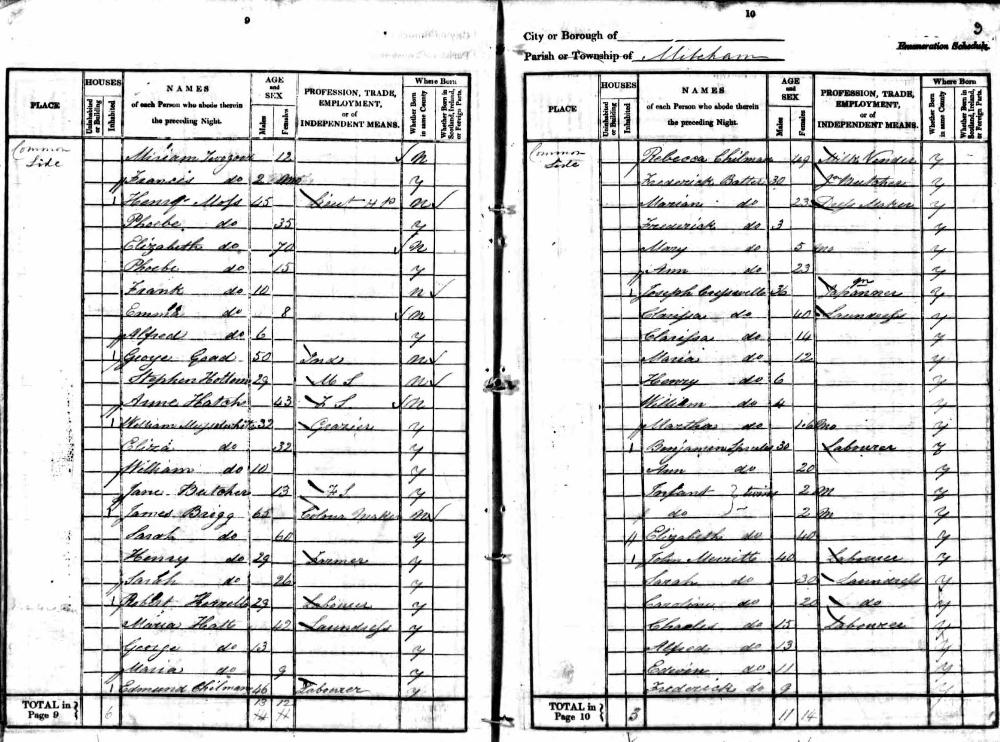 9
HOUSES
AGE and SEX
Where Born
PLACE
Uninhabited or Building
Inhabited
NAMES of each Person who abode therein the preceding Night.
Males
Females
PROFESSION, TRADE, EMPLOYMENT, or of INDEPENDENT MEANS.
Whether Born in same County
Whether Born in Scotland, Ireland, or Foreign Parts.
Common Side
Miriam 12 N
Francis do 2 Y
1 Henry Moss 45 Lieut N
Phoebe do 35 Y
Elizabeth do 70 N
Phoebe do 15 Y
Frank do 10 N
Emma do 8 N
Alfred do 6 Y
1 George Goad 50 Ind N
Stephen 29 M S N
Anne Hatch 43 F S N
1 William 32 Grazier Y
Eliza do 32 Y
William do 10 Y
Jane Butcher 13 F S Y
1 James Bragg 65 Colour Maker N
Sarah do 60 Y
Henry do 29 Farmer Y
Sarah do 26 Y
1 Robert 29 Labourer Y
Maria Hall 47 Laundress Y
George do 13 Y
Maria do 9 Y
1 Edmund Chilman 46 Labourer Y
TOTAL in Page 9 6 13 12
10
3
City or Borough of
Parish or Township of Mitcham
Enumeration Schedule.
HOUSES
AGE and SEX
Where Born
PLACE
Uninhabited or Building
Inhabited
NAMES of each Person who abode therein the preceding Night.
Males
Females
PROFESSION, TRADE, EMPLOYMENT, or of INDEPENDENT MEANS.
Whether Born in same County
Whether Born in Scotland, Ireland, or Foreign Parts.
Common Side
Rebecca Chilman 49 Milk Vender Y
Frederick Batter 30 Butcher Y
Marian do 23 Dress Maker Y
Frederick do 3 Y
Mary do 5 mo Y
Ann do 23 Y
1 Joseph Cresswell 36 Japanner Y
Clarissa do 40 Laundress Y
Clarissa do 14 Y
Maria do 12 Y
Henry do 6 Y
William do 4 Y
Martha do mo Y
1 Benjamin 30 Labourer Y
Ann do 20 Y
Infant } twins 2 M Y
do 2 M Y
Elizabeth do 40 Y
1 John Merritt 40 Labourer Y
Sarah do 30 Laundress Y
Caroline do 20 do Y
Charles do 15 Labourer Y
Alfred do 13 Y
Edwin do 11 Y
Frederick do 9 Y
TOTAL in Page 10 3 11 14